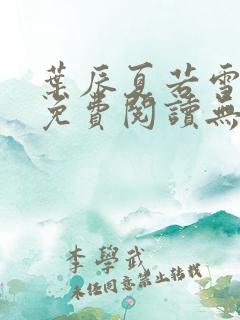 葉辰夏若雪
免費閱讀無
李學武
未經同意禁止轉載